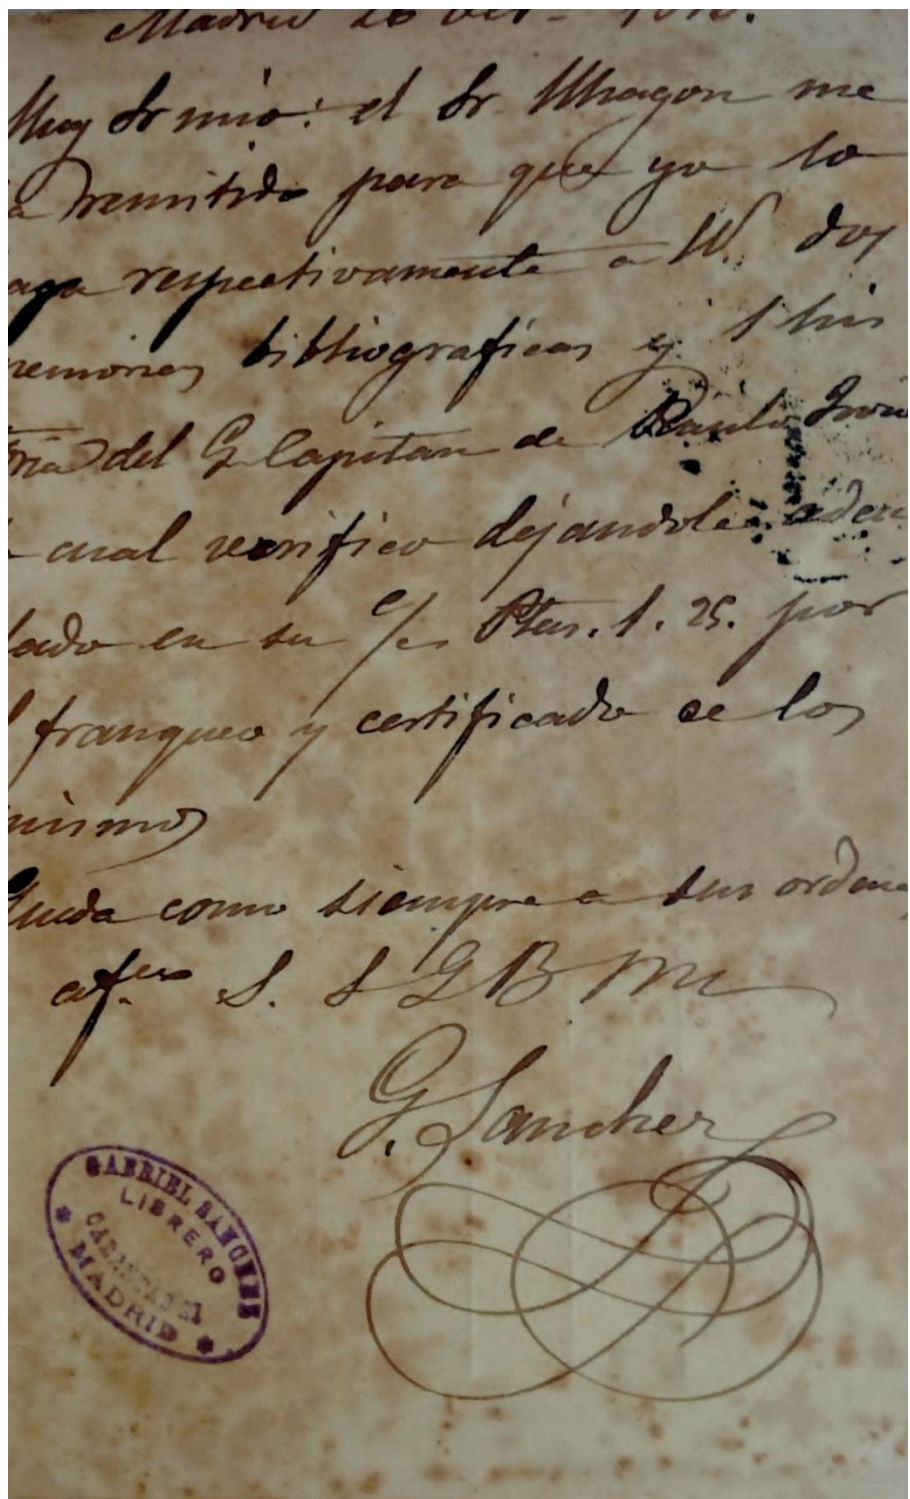 Madrid 26 Oct.
Muy Sr mio: el Sr. Uhagon me
a remitido para que yo lo
aga respectivamente a W. dos
memorias bibliograficas y 1 his
toria del G Capitan de Paulo Jovio
cual verifico dejandole aden
dado en su c/c Ptas. 1. 25. por
l franqueo y certificado de los
mismos
Queda como siempre a sus ordenes
af.mo S. S Q B M
G. Sanchez
GABRIEL SANCHEZ
LIBRERO
CARRETAS 21
MADRID